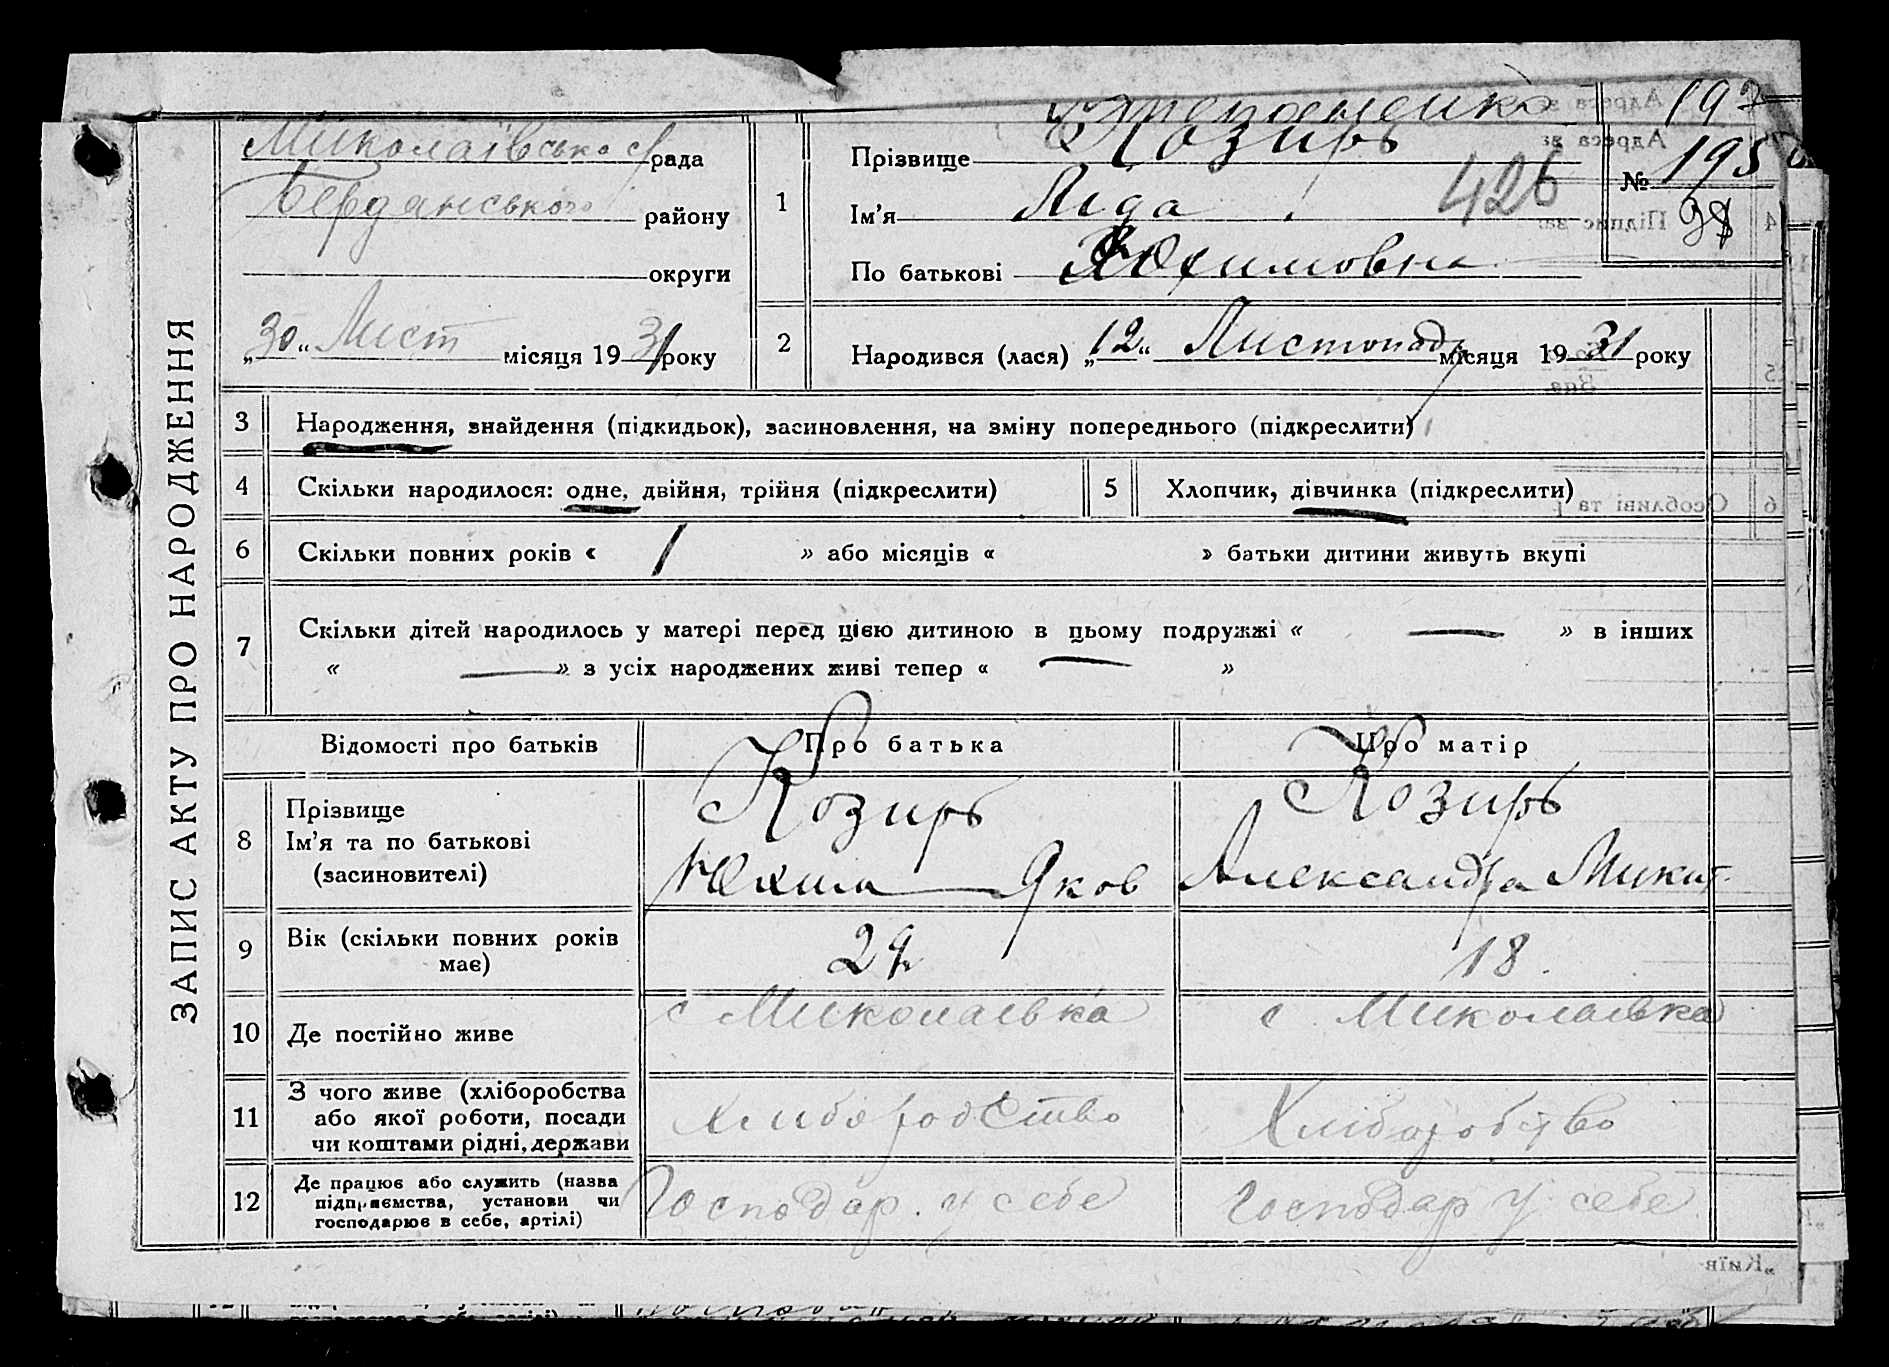 ЗАПИС АКТУ ПРО НАРОДЖЕННЯ
Миколаївсько с/рада
Бердянського району
округи
„30“ Лист місяця 1931 року
1
Прізвище Козирь
Ім'я Ліда
По батькові Юхимовна
426
№ 195
38
2
Народився (лася) „12“ Листопада місяця 1931 року
3 Народження, знайдення (підкидьок), засиновлення, на зміну попереднього (підкреслити)
4 Скільки народилося: одне, двійня, трійня (підкреслити)
5 Хлопчик, дівчинка (підкреслити)
6 Скільки повних років « 1 » або місяців « » батьки дитини живуть вкупі
7 Скільки дітей народилось у матері перед цією дитиною в цьому подружжі « — » в інших
« — » з усіх народжених живі тепер « — »
Відомості про батьків Про батька Про матір
8 Прізвище
Ім'я та по батькові
(засиновителі)
Козирь
Юхим Яков
Козирь
Александра Микит
9 Вік (скільки повних років
має)
24
18
10 Де постійно живе
с Миколаевка
с Миколаевка
11 З чого живе (хліборобства
або якої роботи, посади
чи коштами рідні, держави
хлиборобство
Хліборобство
12 Де працює або служить (назва
підприємства, установи чи
господарює в себе, артілі)
Господар. у себе
Господар у себе
„Київ